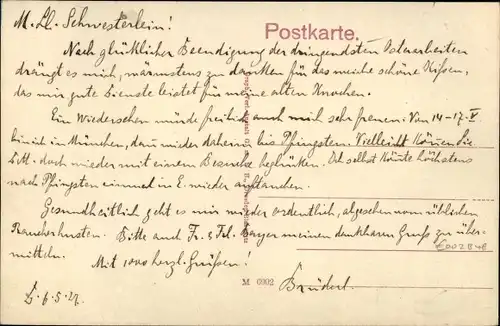 M. Ll. Schwesterlein!
Postkarte.
Nach glücklicher Beendigung der dringendsten Osterarbeiten
drängt es mich, wärmstens zu danken für das weiche schöne Kissen,
das mir gute Dienste leistet für meine alten Knochen.
Ein Wiedersehen würde freilich auch mich sehr freuen. Von 14–17. V
bin ich in München, dann wieder daheim bis Pfingsten. Vielleicht können Sie
doch wieder mit einem Besuche beglücken. Ich selbst könnte höchstens
nach Pfingsten einmal in E. wieder auftauchen.
Gesundheitlich geht es mir wieder ordentlich, abgesehen vom üblichen
Raucherhusten. Bitte auch Fr. & Frl. Bayer meinen dankbaren Gruß zu über-
mitteln.
Mit 1000 herzl. Grüßen!
M 0902
Brüderl.
6.5.27.